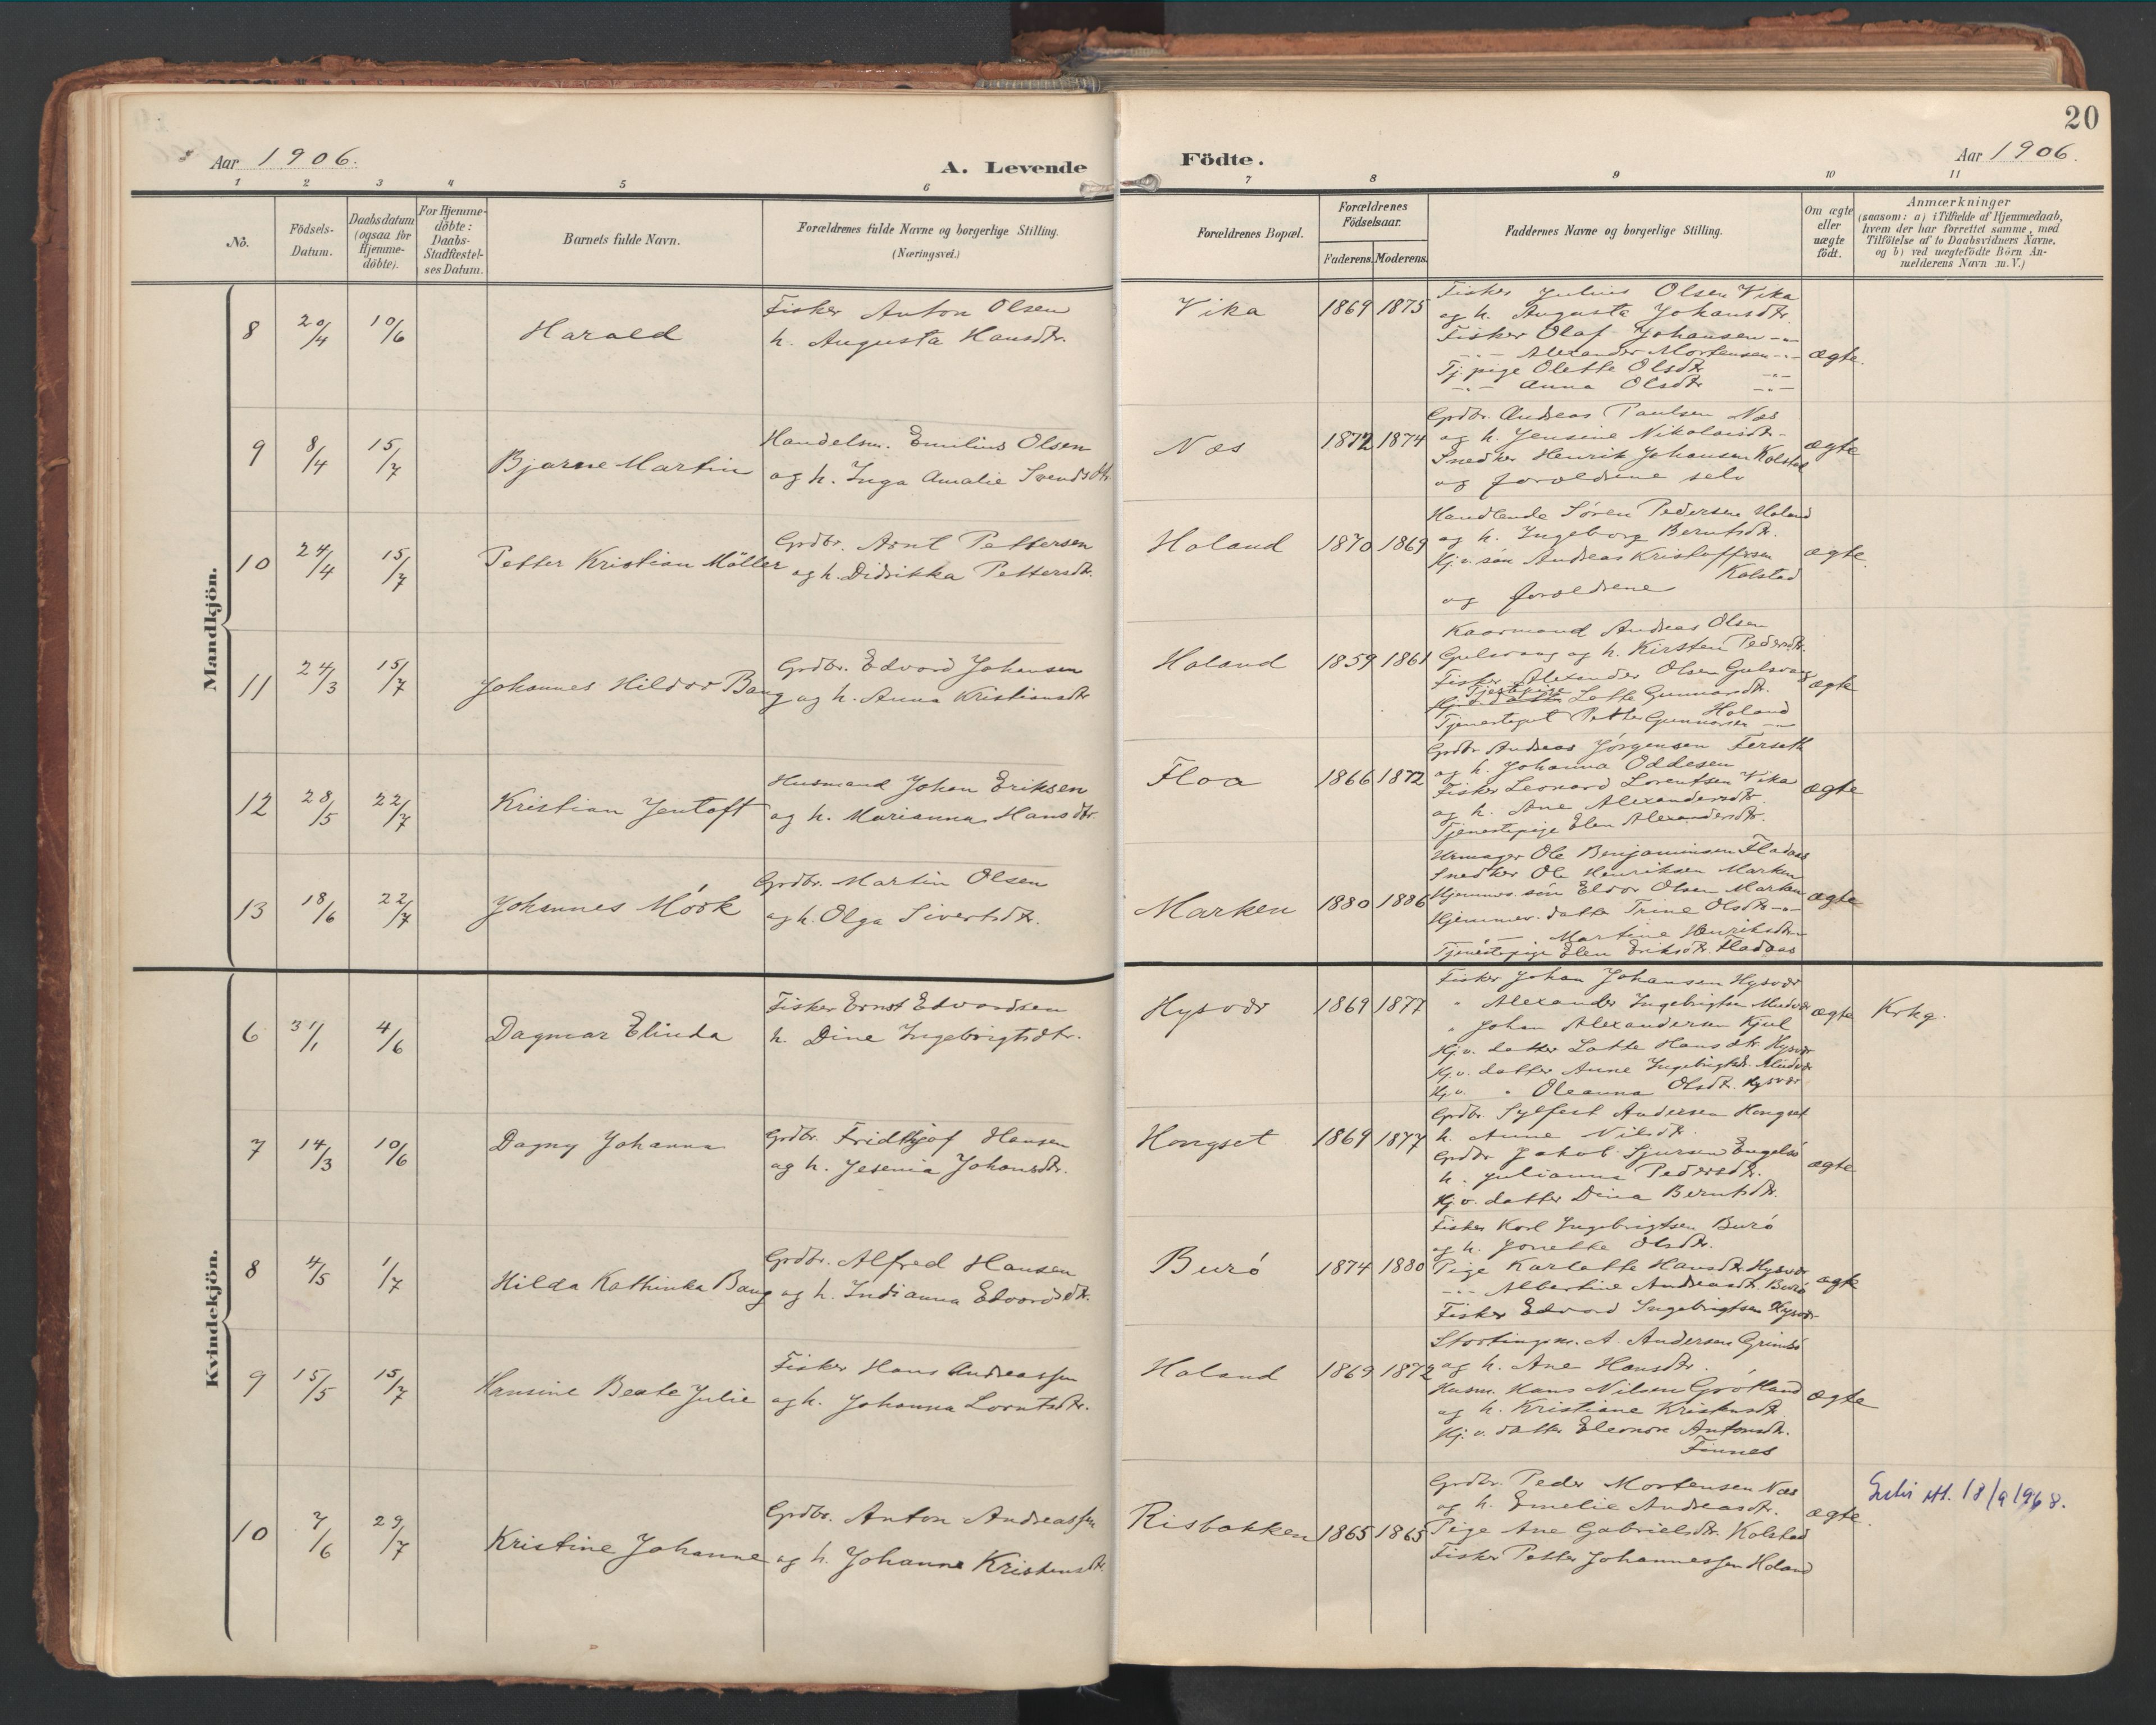 20
Aar 1906.
A. Levende
Födte.
Aar 1906.
1 2 3 4 5 6 7 8 9 10 11
No.
Födsels-
Datum.
Daabsdatum
(ogsaa for
Hjemme-
döbte).
For Hjemme-
döbte:
Daabs-
Stadfæstel-
ses Datum.
Barnets fulde Navn.
Forældrenes fulde Navne og borgerlige Stilling.
(Næringsvei.)
Forældrenes Bopæl.
Forældrenes
Födselsaar.
Faderens. Moderens.
Faddernes Navne og borgerlige Stilling.
Om ægte
eller
uægte
födt.
Anmærkninger
(saasom: a) i Tilfælde af Hjemmedaab,
hvem der har forrettet samme, med
Tilföielse af to Daabsvidners Navne.
og b) ved uægtefödte Börn An-
melderens Navn m. V.)
Mandkjön.
8 20/4 10/6 Harald
Fisker Anton Olsen
h. Augusta Hansdtr.
Vika 1869 1875
Fisker Julius Olsen Vika
og h. Augusta Johansdtr.
Fisker Olaf Johansen -"-
-"- Alexander Mortensen -"-
Tj. pige Olette Olsdtr -"-
-"- Anna Olsdtr -"-
ægte.
9 8/4 15/7 Bjarne Martin
Handelsm. Emilius Olsen
og h. Inga Amalie Svendsdtr.
Næs 1872 1874
Grdbr. Andreas Paulsen Næs
og h. Jensine Nikolaisdtr-
Snedker Henrik Johansen Kolstad
og forældrene selv
ægte
10 24/4 15/7 Petter Kristian Möller
Grdbr. Arnt Pettersen
og h. Didrikka Pettersdtr.
Holand 1870 1869
Handlende Sören Pedersen Holand
og h. Ingeborg Berntsdtr.
Hj. v. sön Andreas Kristoffersen
Kolstad
og forældrene
ægte
11 24/3 15/7 Johannes Hildor Bang
Grdbr. Edvard Johansen
og h. Anna Kristiansdtr
Holand 1859 1861
Kaarmand Andreas Olsen
Gulsvaag og h. Kirsten Pedersdtr.
Fisker Alexander Olsen Gulsvaag
Tjenestepige Lotte Gunnarsdtr.
Holand
Tjenestegut Petter Gunnarsen -"-
ægte
12 28/5 22/7 Kristian Jentoft
Husmand Johan Eriksen
og h. Marianna Hansdtr.
Floa 1866 1872
Grdbr Andreas Jörgensen Ferseth
og h. Johanna Oddesen
Fisker Leonard Lorentsen Vika
og h. Ane Alexandersdtr.
Tjenestepige Elen Alexandersdtr.
ægte
13 18/6 22/7 Johannes Mörk
Grdbr. Martin Olsen
og h. Olga Sivertsdtr.
Marken 1880 1886
Urmager Ole Benjaminsen Fladaas
Snedker Ole Henriksen Marken
Hjemmev. sön Eldor Olsen Marken
Hjemmev. datter Trine Olsdtr -"-
-"- Martine Henriksdtr -"-
Tjenestepige Elen Eriksdtr. Fladaas
ægte
Kvindekjön.
6 31/1 4/6 Dagmar Elinda
Fisker Ernst Edvardsen
h. Dine Ingebrigtsdtr.
Hysvær 1869 1877
Fisker Johan Johansen Hysvær
" Alexander Ingebrigtsen Mudvær
" Johan Alexandersen Kjul
Hj. v. datter Lotte Hansdtr. Hysvær
Hj. v. datter Anne Ingebrigtsdtr. Mudvær
Hj. v. " Oleanna Olsdtr. Hysvær
ægte Krkg.
7 14/3 10/6 Dagny Johanna
Grdbr. Fridthjof Hansen
og h. Jesenia Johansdtr.
Hongset 1869 1877
Grdbr. Sylfest Andersen Hongset
h. Anne Nilsdtr.
Grdbr Jakob Sjursen Engelsö
h. Julianna Pedersdtr.
Hj. v. datter Dina Berntsdtr.
ægte
8 4/5 1/7 Hilda Kathinka Bang
Grdbr. Alfred Hansen
og h. Indianna Edvardsdtr.
Burö 1874 1880
Fisker Karl Ingebrigtsen Burö
og h. Jonette Olsdtr.
Pige Karlotte Hansdtr. Hysvær
-"- Albertine Andreasdtr. Burö
Fisker Edvard Ingebrigtsen Hysvær
ægte
9 15/5 15/7 Hansine Beate Julie
Fisker Hans Andreassen
og h. Johanna Lorntsdtr.
Holand 1869 1872
Stortingsm. A. Andersen Grimsö
og h. Ane Hansdtr.
Husm. Hans Nilsen Grötland
og h. Kristiane Kristensdtr
Hj. v. datter Eleonore Antonsdtr.
Finnes
ægte
10 7/6 29/7 Kristine Johanne
Grdbr. Anton Andreassen
og h. Johanna Kristensdtr.
Risbakken 1865 1865
Grdbr. Peder Mortensen Næs
og h. Emelie Andreasdtr.
Pige Ane Gabrielsdtr. Kolstad
Fisker Petter Johannessen Holand
ægte.
att. 18/9 1968.